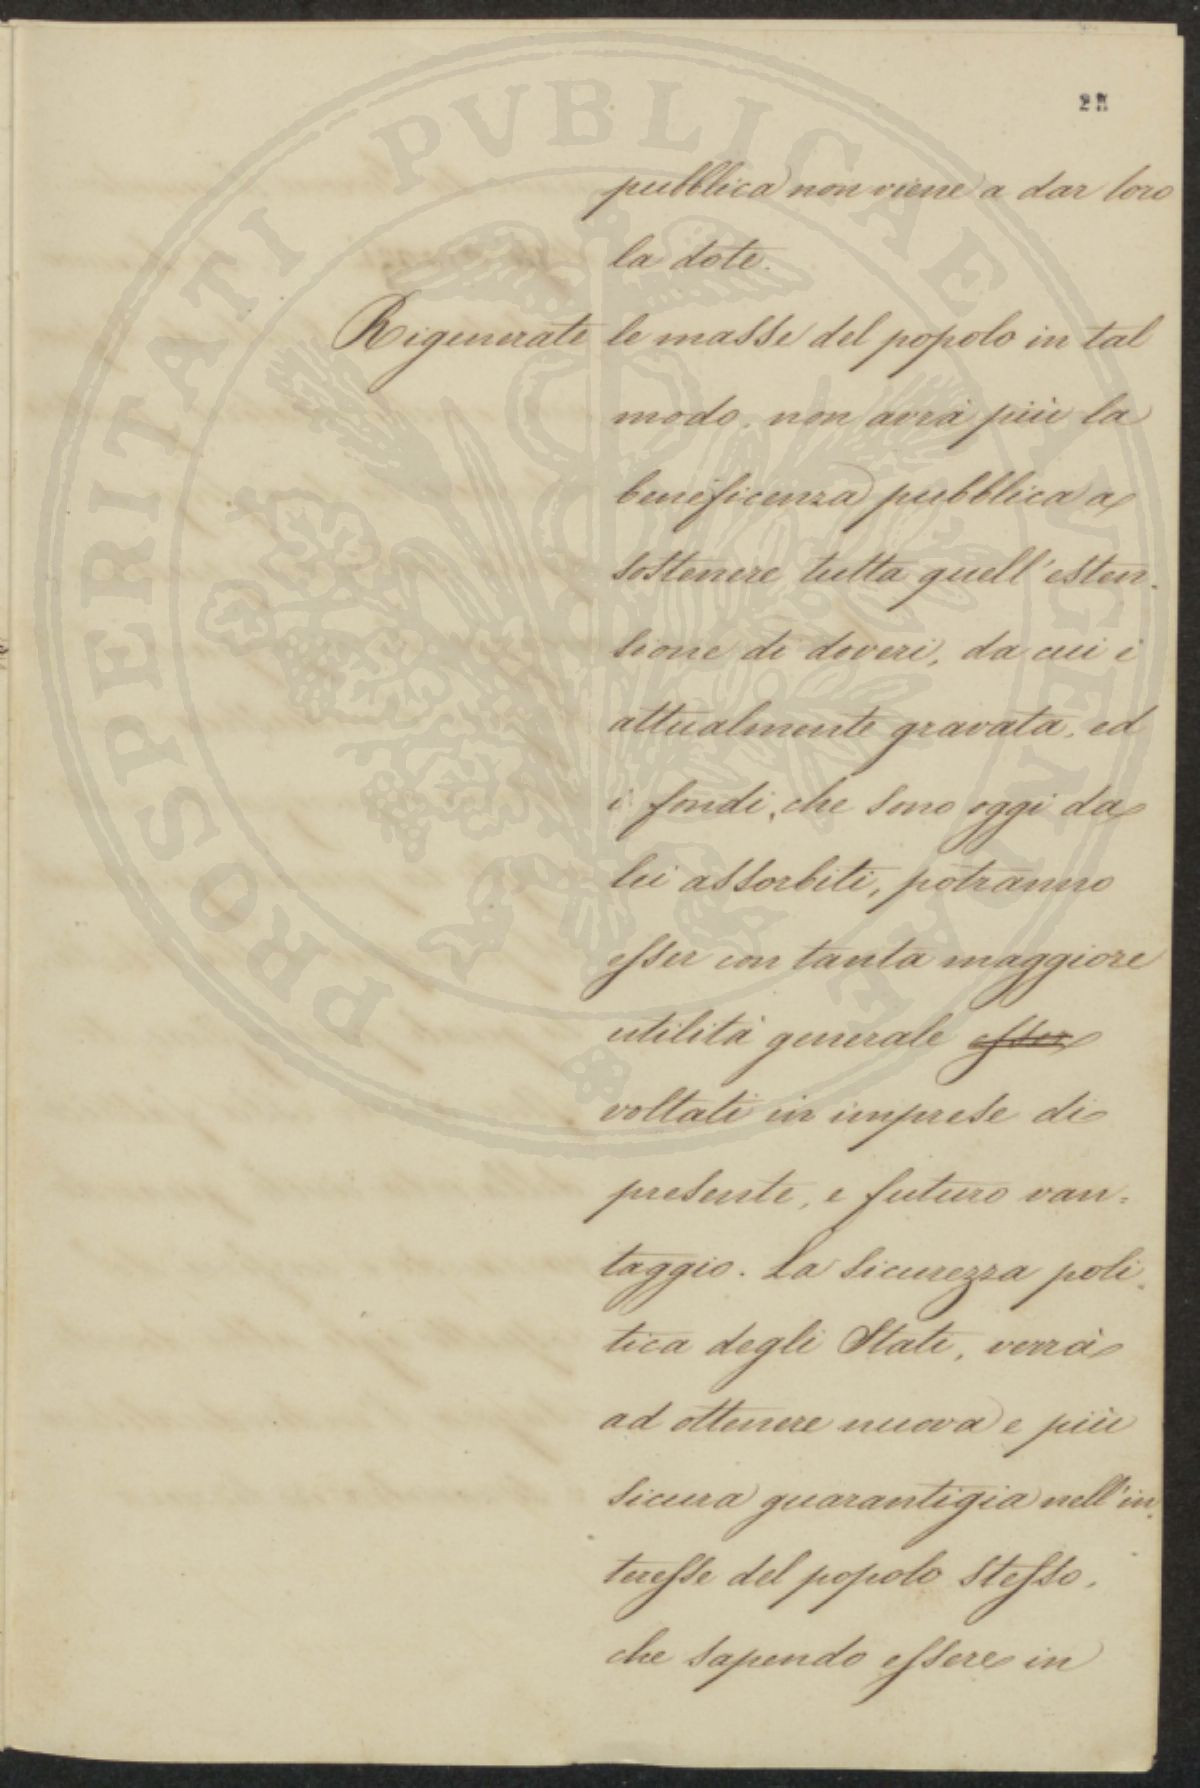 PROSPERITATI PVBLICAE AVGENDAE
pubblica non viene a dar loro
la dote.
Rigenerate le masse del popolo in tal
modo, non avrà più la
beneficenza pubblica a
sostenere tutta quell'esten-
sione di doveri, da cui è
attualmente gravata, ed
i fondi, che sono oggi da
lei assorbiti, potranno
esser con tanta maggiore
utilità generale esser
voltati in imprese di
presente, e futuro van=
taggio. La sicurezza poli-
tica degli Stati, verrà
ad ottenere nuova e più
sicura guarantigia nell'in-
teresse del popolo stesso,
che sapendo essere in